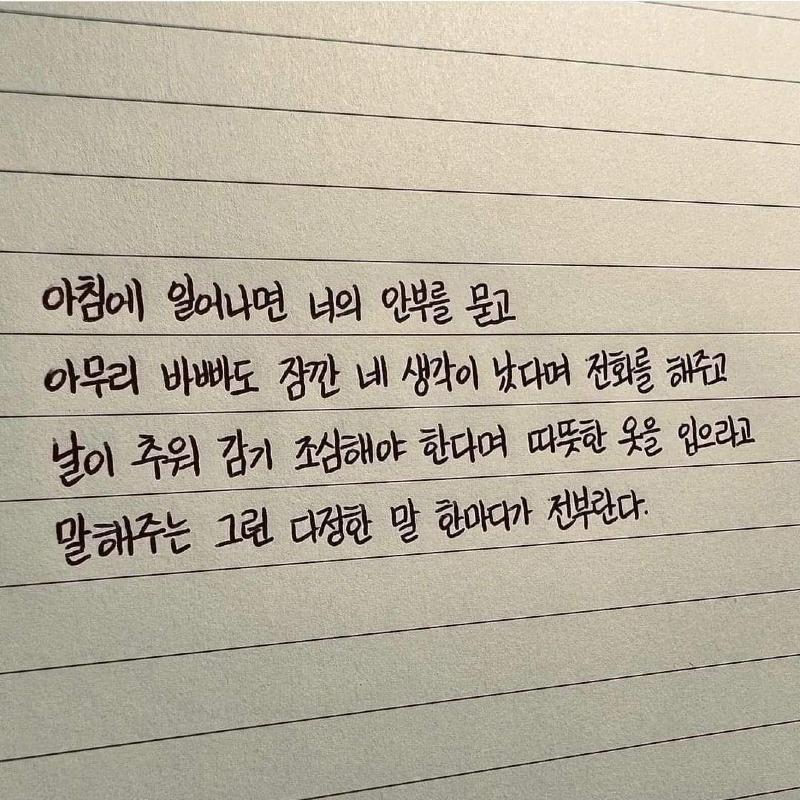 아침에 일어나면 너의 안부를 묻고
아무리 바빠도 잠깐 네 생각이 났다며 전화를 해주고
날이 추워 감기 조심해야 한다며 따뜻한 옷을 입으라고
말해주는 그런 다정한 말 한마디가 전부란다.